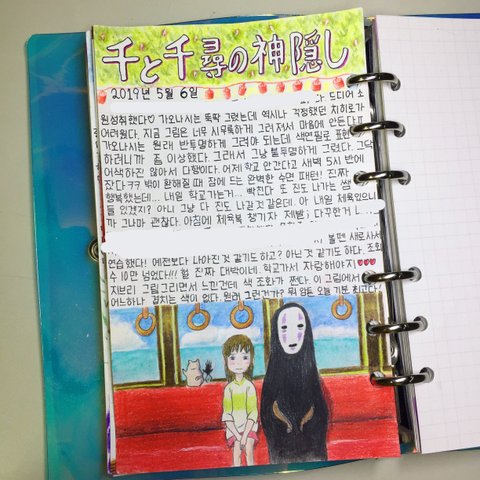 千と千尋の神隠し
2019년 5월 6일
다 드디어 소
원성취했다♡ 가오나시는 뚝딱 그렸는데 역시나 걱정했던 치히로가
어려웠다. 지금 그림은 너무 시무룩하게 그려져서 마음에 안든다
가오나시는 원래 반투명하게 그려야 되는데 색연필로 표현
하려니까 좀 이상했다. 그래서 그냥 불투명하게 그렸다. 그닥
어색하진 않아서 다행이다. 어제 학교 안간다고 새벽 5시 반에
잤다ㅋㅋ 밖이 환해질 때 잠에 드는 완벽한 수면 패턴! 진짜
행복했는데... 내일 학교가는거... 빡친다 또 진도 나가는 쌤
들 있겠지? 아니 그냥 다 진도 나갈 것 같은데. 아 내일 체육있으니
까 그나마 괜찮다. 아침에 체육복 챙기자 제발
볼펜 새로사서
연습했다! 예전보다 나아진 것 같기도하고? 아닌것 같기도 하다. 조회
수 10만 넘었다!!! 헐 진짜 대박이네. 학교가서 자랑해야지♥♥♥
지브리 그림 그리면서 느낀건데 색 조화가 쩐다. 이 그림에서
어느하나 겹치는 색이 없다. 원래 그런건가? 뭐 암튼 오늘 기분 최고다!